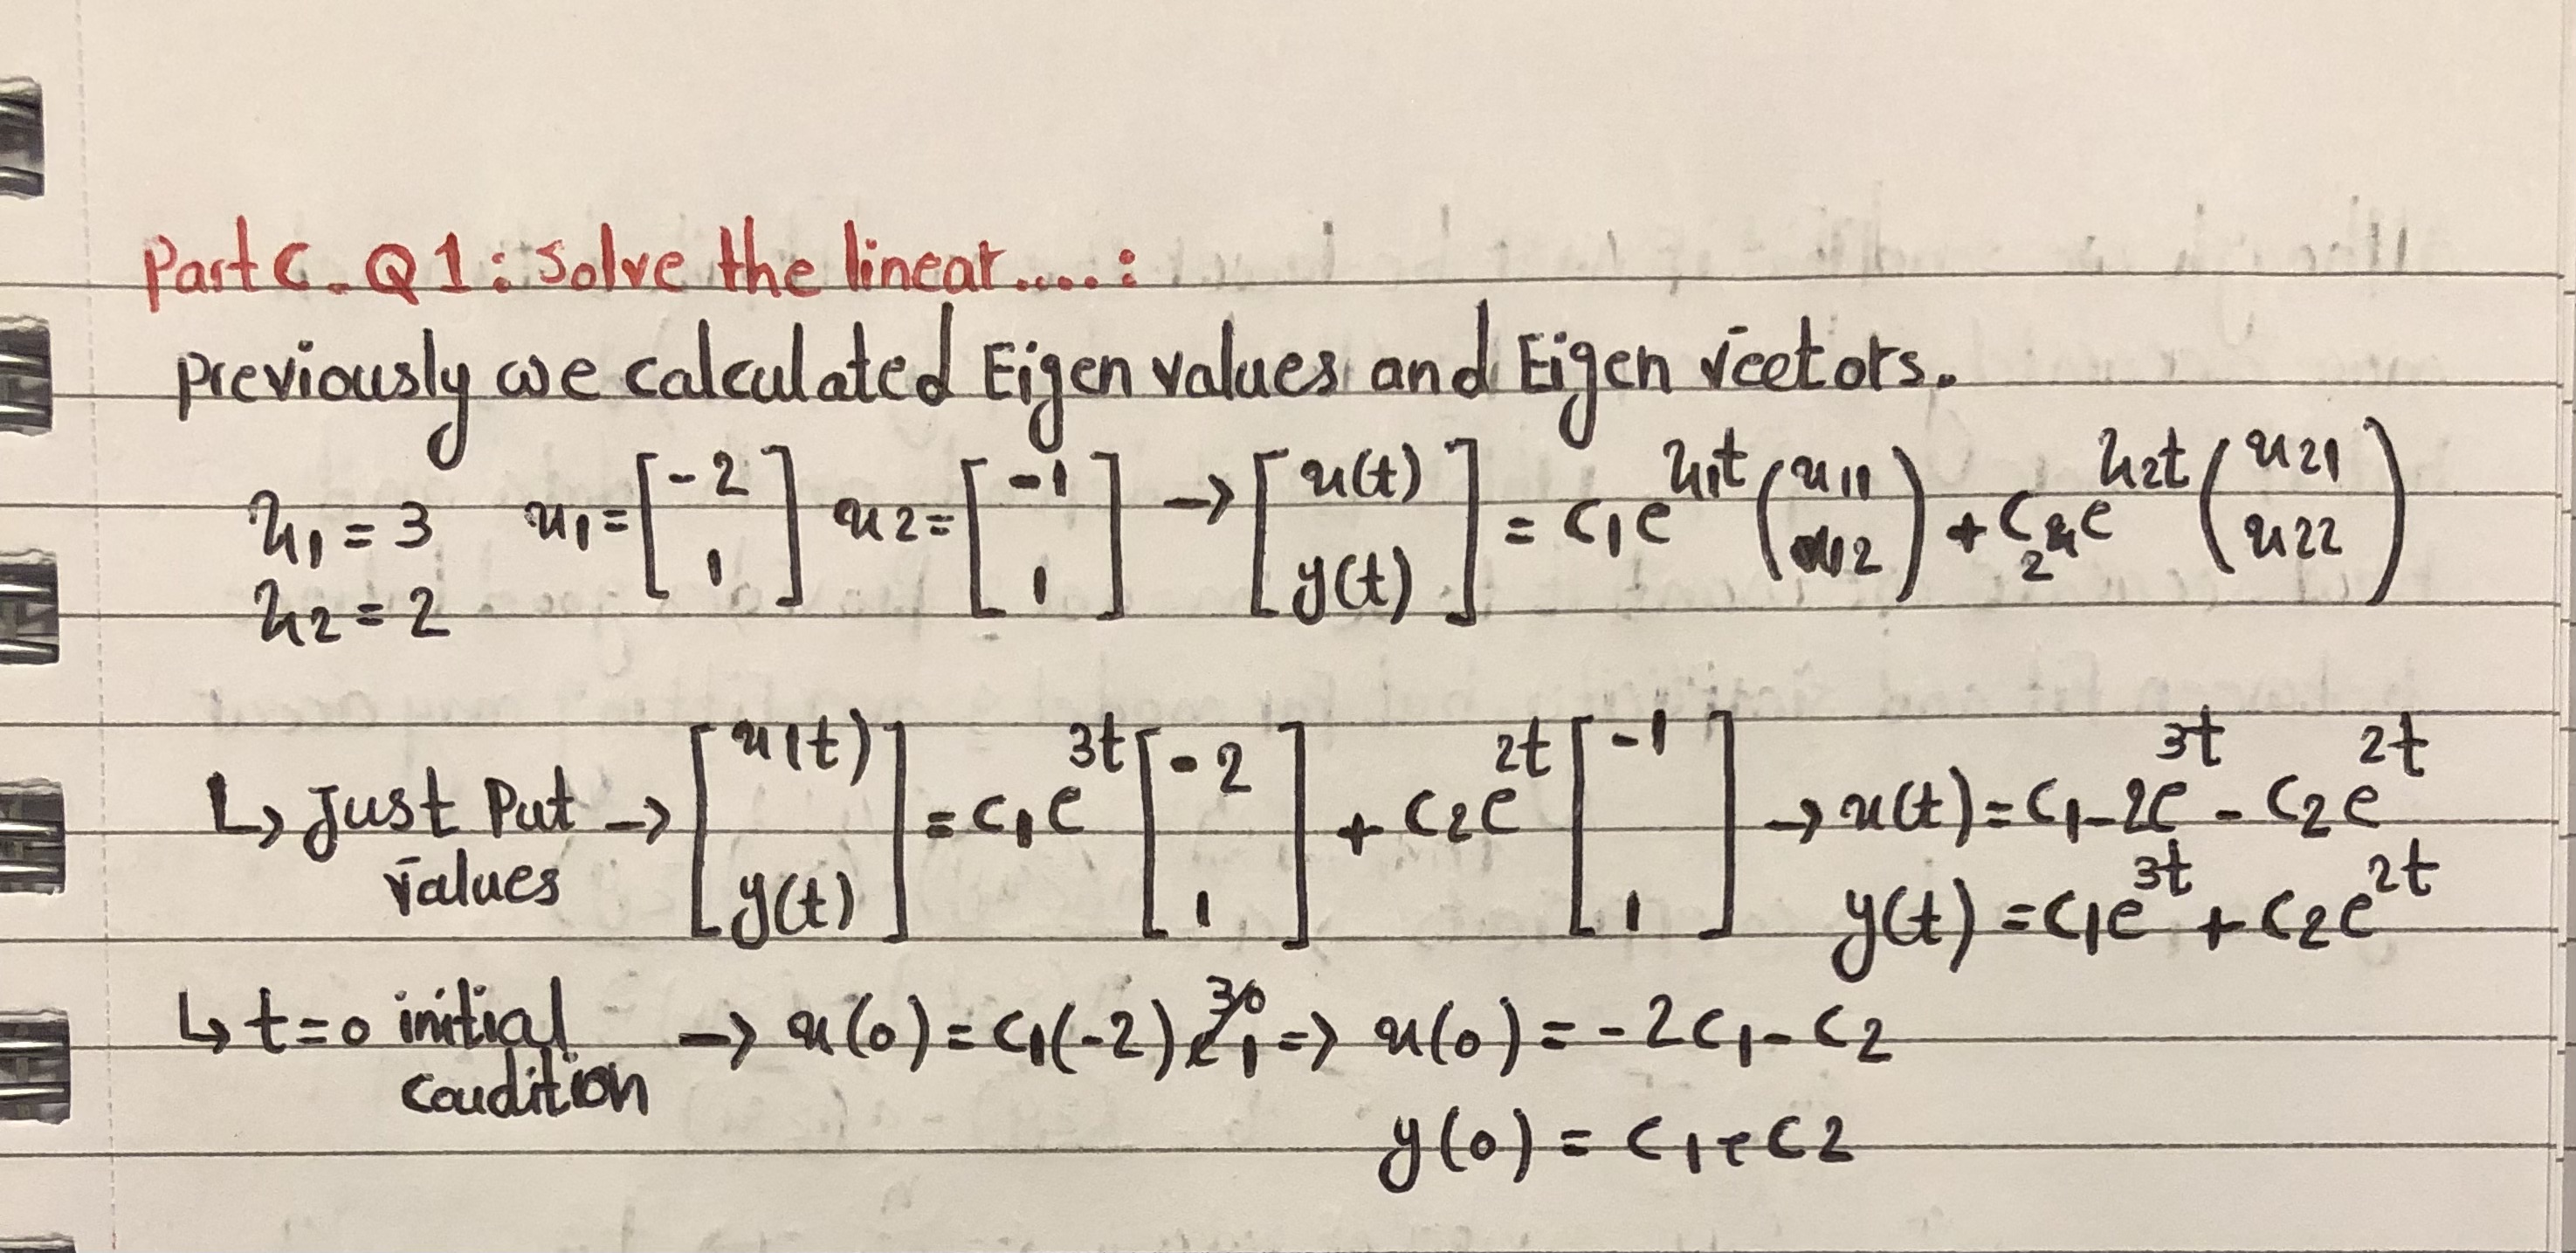 Part C. Q1: Solve the linear....:
Previously we calculated Eigen values and Eigen vectors.
λ1 = 3   x1 = [-2 1]   x2 = [-1 1] → [x(t) y(t)] = c1 e^λ1t (x11 x12) + c2 e^λ2t (x21 x22)
λ2 = 2
↳ Just Put values → [x(t) y(t)] = c1 e^3t [-2 1] + c2 e^2t [-1 1] → x(t) = c1 - 2e^3t - c2 e^2t
y(t) = c1 e^3t + c2 e^2t
↳ t=0 initial condition → x(0) = c1(-2) e^3·0 1 => x(0) = -2c1 - c2
y(0) = c1 + c2